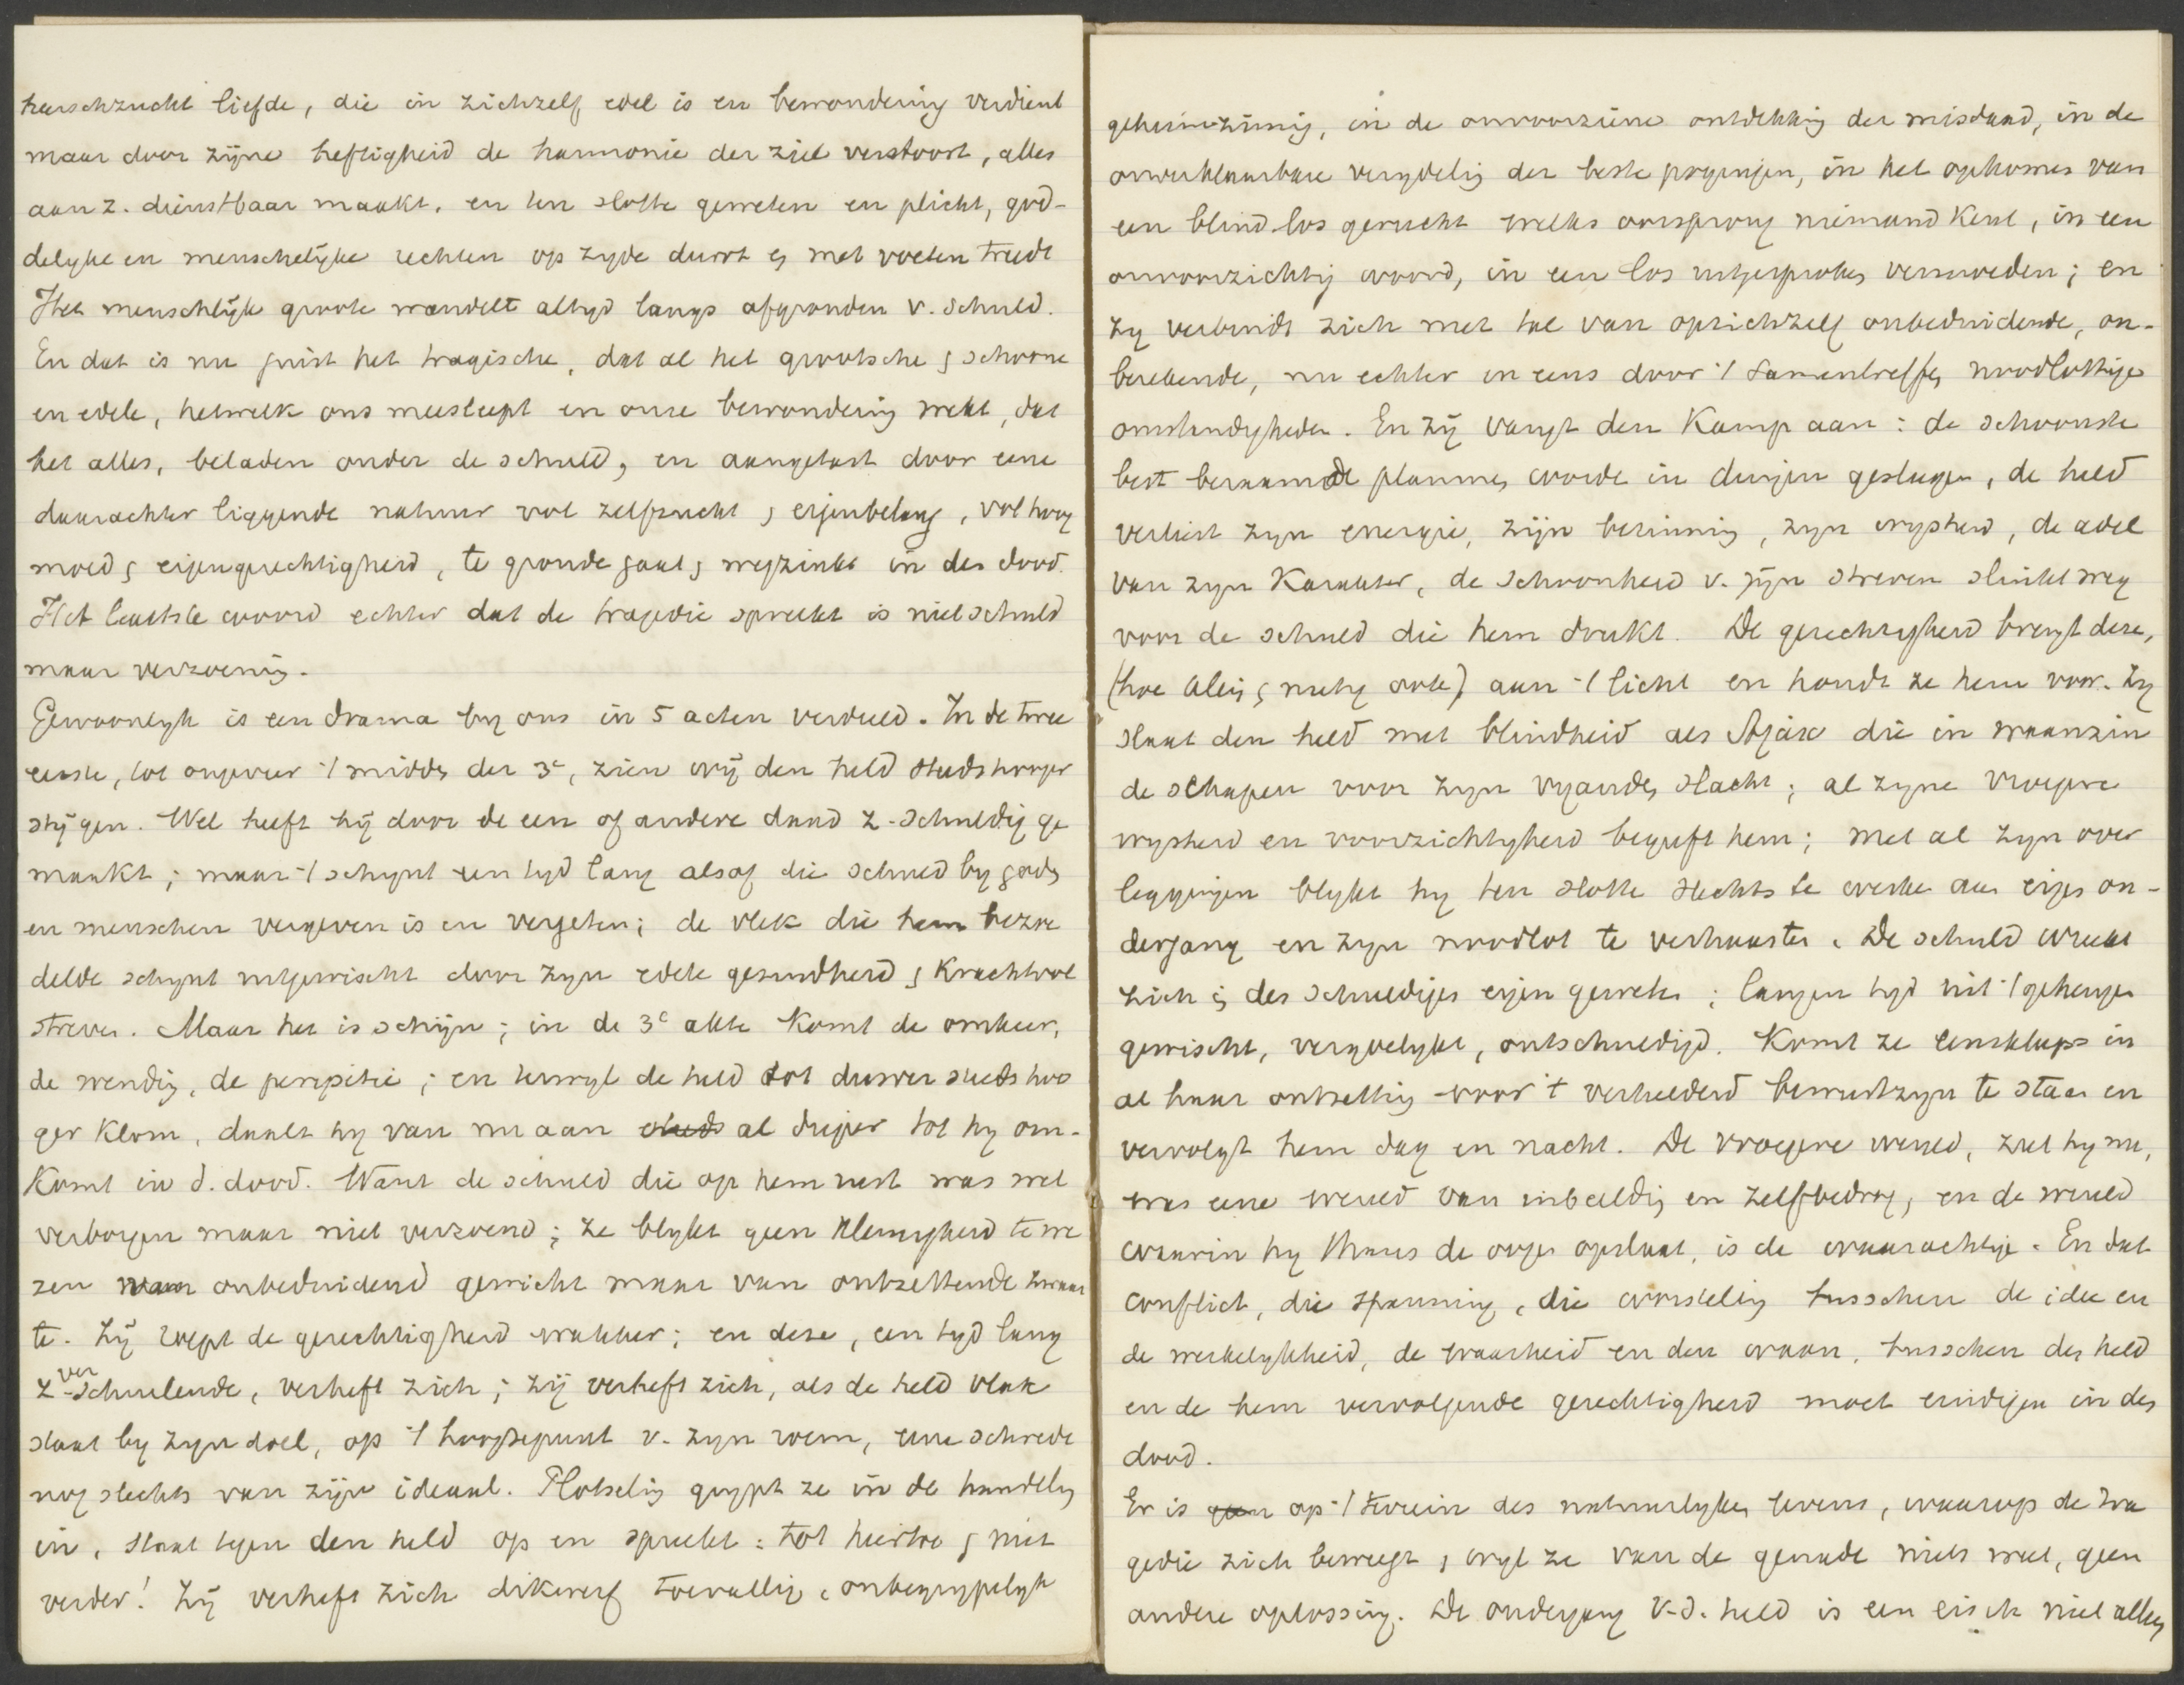 heerschzucht liefde, die in zichzelf edel is en bewondering verdient
maar door zijne heftigheid de harmonie der ziel verstoort, alles
aan z. dienstbaar maakt, en ten slotte geweten en plicht, god-
delyke en menschelijke rechten op zyde duwt en met voeten treedt
Het menschlijk groote wandelt altyd langs afgronden v. schuld.
En dat is nu juist het tragische, dat al het grootsche en schoone
en edele, hetwelk ons meesleept en onze bewondering wekt, dat
het alles, beladen onder de schuld, en aangetast door eene
daarachter liggende natuur vol zelfzucht en eigenbelang, vol hoog
moed en eigengerechtigheid, te gronde gaat en wegzinkt in den dood.
Het laatste woord echter dat de tragedie spreekt is niet schuld
maar verzoening.
Gewoonlyk is een drama by ons in 5 acten verdeeld. In de twee
eerste, tot ongeveer 't midden der 3e, zien wij den held steeds hooger
stijgen. Wel heeft hij door de een of andere daad z. schuldig ge
maakt; maar 't schynt een tyd lang alsof die schuld by goden
en menschen vergeven is en vergeten; de vlek die hem bezoe
delde schynt uitgewischt door zyn edele gezindheid en krachtvol
streven. Maar het is schijn; in de 3e akte komt de omkeer,
de wending, de peripetie; en terwyl de held tot dusver steeds hoo
ger klom, daalt hy van nu aan steeds al dieper tot hy om-
komt in d. dood. Want de schuld die op hem rust was wel
verborgen maar niet verzoend; ze blykt geen kleinigheid te we
zen van onbeduidend gewicht maar van ontzettende zwaar
te. Zij roept de gerechtigheid wakker; en deze, een tyd lang
z. verschuilende, verheft zich; zij verheft zich, als de held vlak
staat by zyn doel, op 't hoogtepunt v. zyn roem, eene schrede
nog slechts van zijn ideaal. Plotseling grypt ze in de handeling
in, staat tegen den held op en spreekt: tot hiertoe en niet
verder! Zij verheft zich dikwerf toevallig, onbegrypelyk
geheimzinnig, in de onvoorziene ontdekking der misdaad, in de
onverklaarbare verydeling der beste pogingen, in het opkomen van
een blind los gerucht welks oorsprong niemand kent, in een
onvoorzichtig woord, in een los uitgesproken vermoeden; en
zy verbindt zich met tal van opzichzelf onbeduidende, on-
berekende, nu echter in eens door 't samentreffen noodlottige
omstandigheden. En zij vangt den kamp aan: de schoonste
best beraamde plannen worden in duigen geslagen, de held
verliest zyn energie, zijn bezinning, zyn wysheid, de adel
van zyn karakter, de schoonheid v. zijn streven slinkt weg
voor de schuld die hem drukt. De gerechtigheid brengt deze,
(hoe klein en nietig ook) aan 't licht en houdt ze hem voor. Zy
slaat den held met blindheid als Ajax die in waanzin
de schapen voor zyn vyanden slacht; al zyne vroegere
wysheid en voorzichtigheid begeeft hem; met al zyn over
leggingen blykt hy ten slotte slechts te werken aan eigen on-
dergang en zyn noodlot te verhaasten. De schuld wreekt
zich in des schuldigen eigen geweten; langen tyd uit 't geheugen
gewischt, vergoelykt, ontschuldigd. Komt ze eensklaps in
al haar ontzetting voor 't verhelderd bewustzyn te staan en
vervolgt hem dag en nacht. De vroegere wereld, ziet hy nu,
was eene wereld van inbeelding en zelfbedrog, en de wereld
waarin hy thans de oogen opslaat, is de waarachtige. En dat
conflict, die spanning, die worsteling tusschen de idee en
de werkelykheid, de waarheid en den waan, tusschen den held
en de hem vervolgende gerechtigheid moet eindigen in den
dood.
Er is geen op 't terrein des natuurlyken levens, waarop de tra
gedie zich beweegt, wyl ze van de genade niets weet, geen
andere oplossing. De ondergang v. d. held is een eisch niet alleen